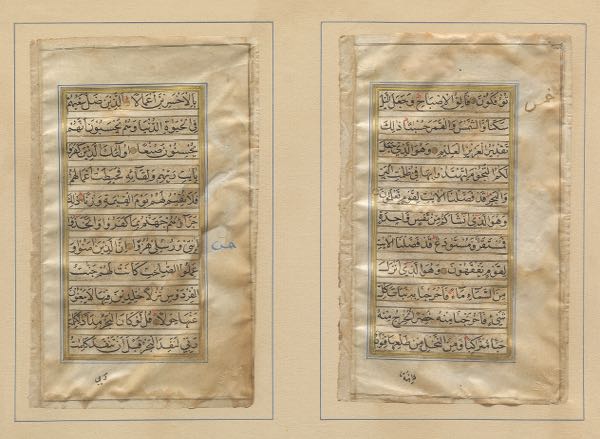 تؤفكون فالق الاصباح وجعل الليل
خمس
سكنا والشمس والقمر حسبانا ذلك
تقدير العزيز العليم وهو الذي جعل
لكم النجوم لتهتدوا بها في ظلمت البر
والبحر قد فصلنا الايت لقوم يعلمون
وهو الذي انشاكم من نفس واحدة
فمستقر ومستودع قد فصلنا الايت
لقوم يفقهون وهو الذي انزل
من السماء ماء فاخرجنا به نبات كل
شيء فاخرجنا منه خضرا نخرج منه
حبا متراكبا ومن النخل من طلعها قنوان
بالاخسرين اعمالا الذين ضل سعيهم
في الحيوة الدنيا وهم يحسبون انهم
يحسنون صنعا اولئك الذين كفروا
بايت ربهم ولقائه فحبطت اعمالهم
فلا نقيم لهم يوم القيمة وزنا ذلك
جزاؤهم جهنم بما كفروا واتخذوا
ايتي ورسلي هزوا ان الذين امنوا و
عملوا الصلحت كانت لهم جنت
الفردوس نزلا خلدين فيها لا يبغون
عنها حولا قل لو كان البحر مدادا لكلمت
ربي لنفد البحر قبل ان تنفد كلمت
ربي